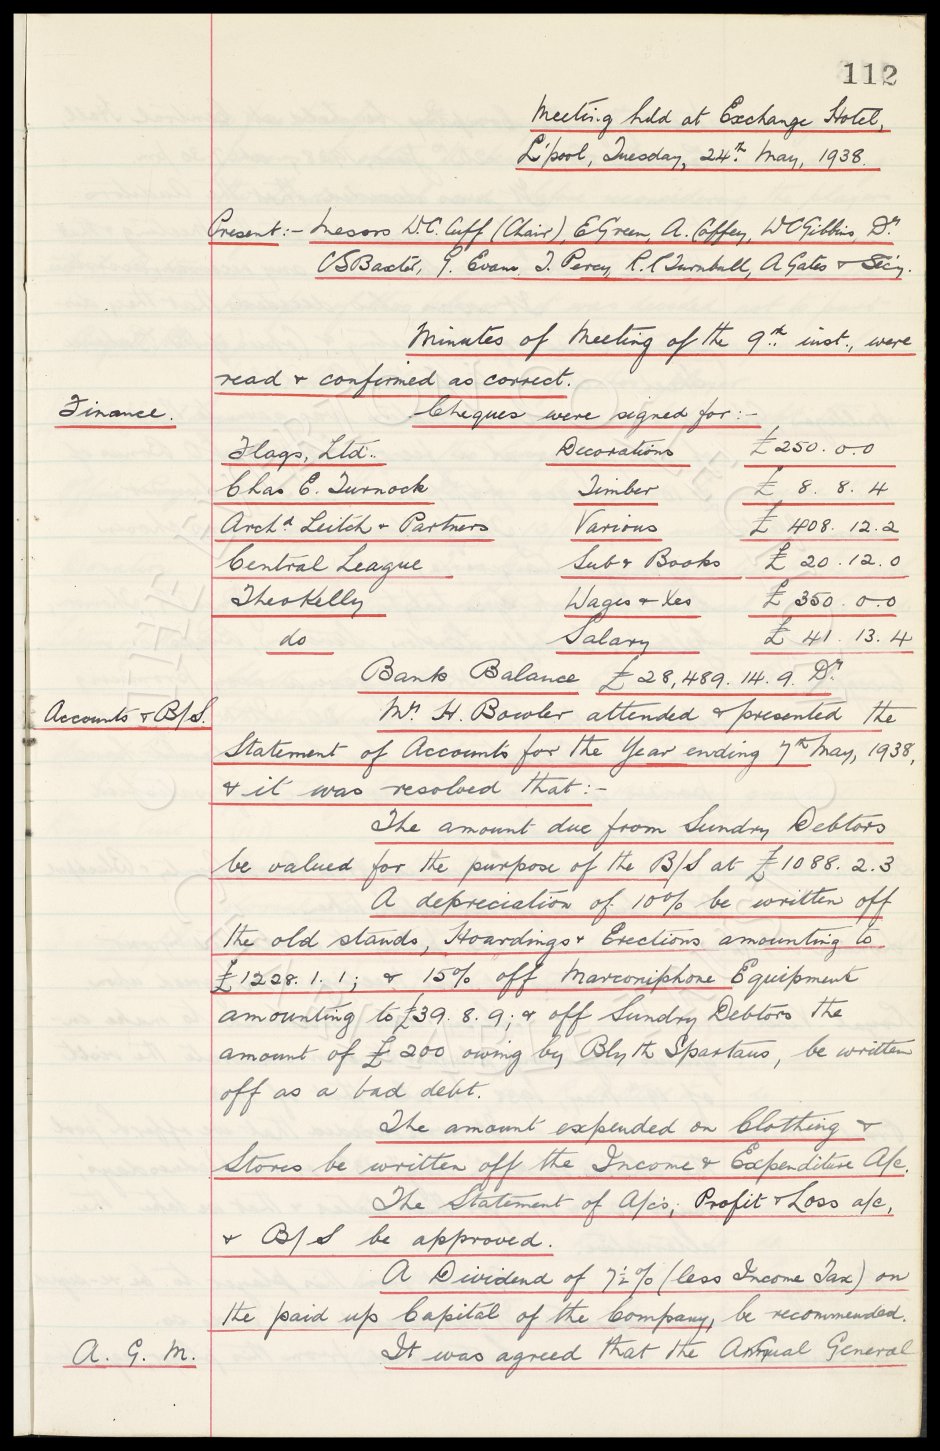 112
Meeting held at Exchange Hotel,
L'pool, Tuesday, 24th May, 1938.
Present:- Messrs W.C. Cuff (Chair), E Green, A. Coffey, W C Gibbins, Dr
C S Baxter, G. Evans, T. Percy, R. R Turnbull, A Gates & Sec'y.
Minutes of Meeting of the 9th inst., were
read & confirmed as correct.
Finance. Cheques were signed for:-
Flags, Ltd. Decorations £250. 0. 0
Chas E. Turnock Timber £ 8. 8. 4
Archd Leitch & Partners Various £ 408. 12. 2
Central League Sub & Books £ 20. 12. 0
Theo Kelly Wages & Xes £ 350. 0. 0
do Salary £ 41. 13. 4
Bank Balance £28,489. 14. 9. Dr
Accounts & B/S. Mr H. Bowler attended & presented the
Statement of Accounts for the Year ending 7th May, 1938,
& it was resolved that:-
The amount due from Sundry Debtors
be valued for the purpose of the B/S at £1088. 2. 3
A depreciation of 10% be written off
the old stands, Hoardings & Erections amounting to
£1228. 1. 1; & 15% off Marconiphone Equipment
amounting to £39. 8. 9; & off Sundry Debtors the
amount of £200 owing by Blyth Spartans, be written
off as a bad debt.
The amount expended on Clothing &
Stores be written off the Income & Expenditure A/c.
The Statement of A/cs; Profit & Loss a/c,
& B/S be approved.
A Dividend of 7½% (less Income Tax) on
the paid up Capital of the Company, be recommended.
A. G. M. It was agreed that the Annual General